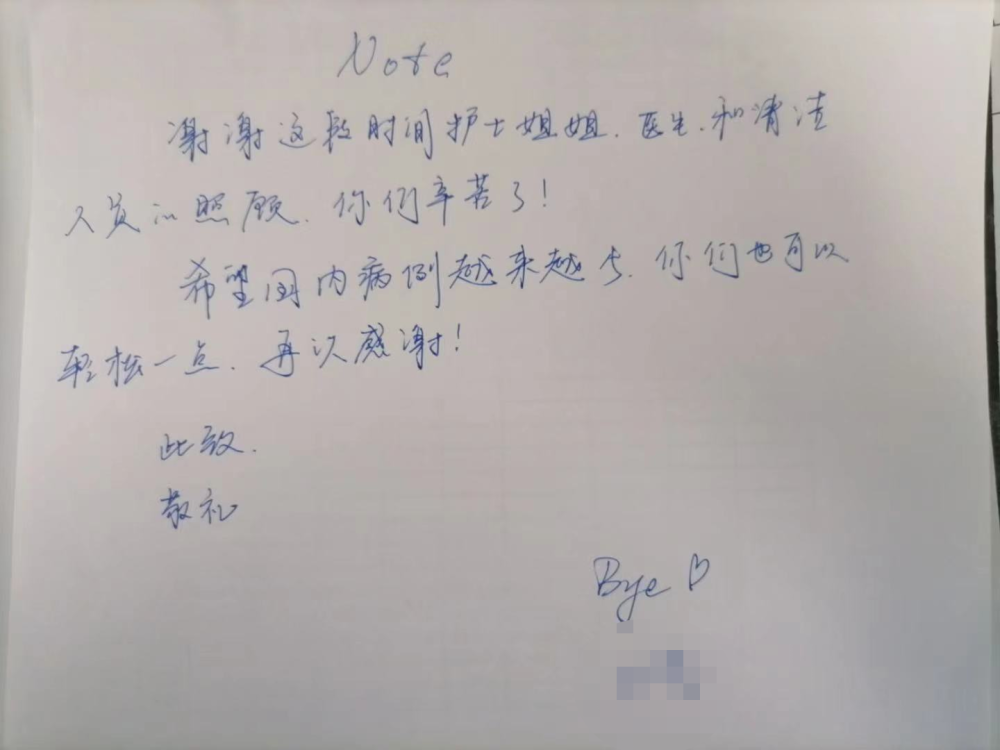 Note
谢谢这段时间护士姐姐、医生、和清洁
人员的照顾、你们辛苦了!
希望国内病例越来越少、你们也可以
轻松一点、再次感谢!
此致、
敬礼
Bye ♡